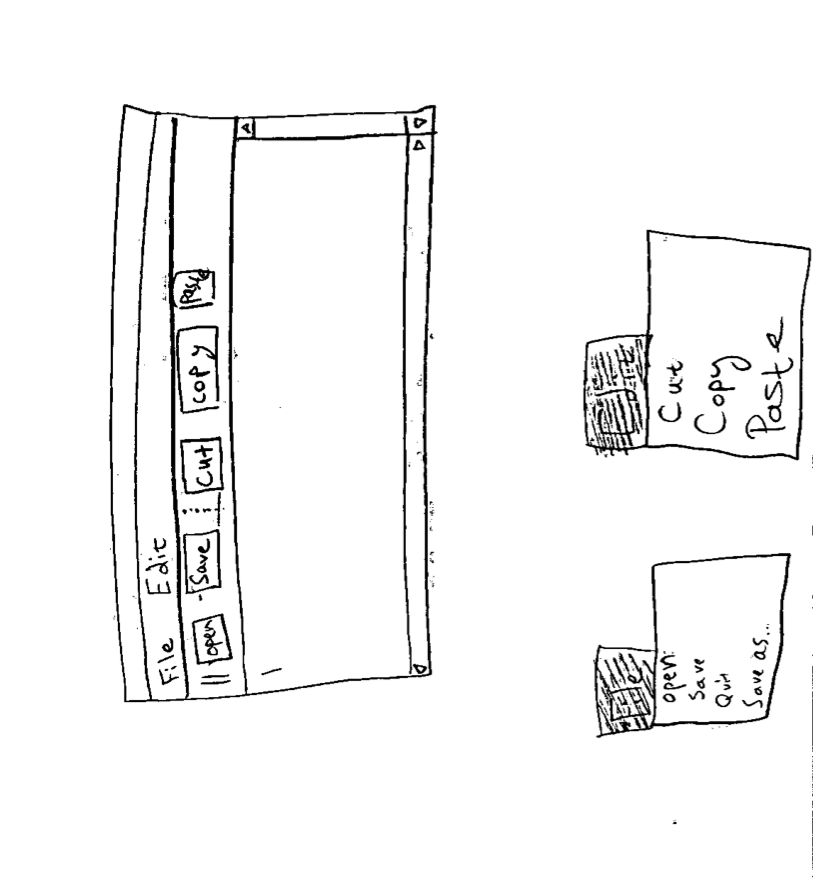 File Edit
open Save Cut copy Paste
open
Save
Quit
Save as...
Cut
Copy
Paste